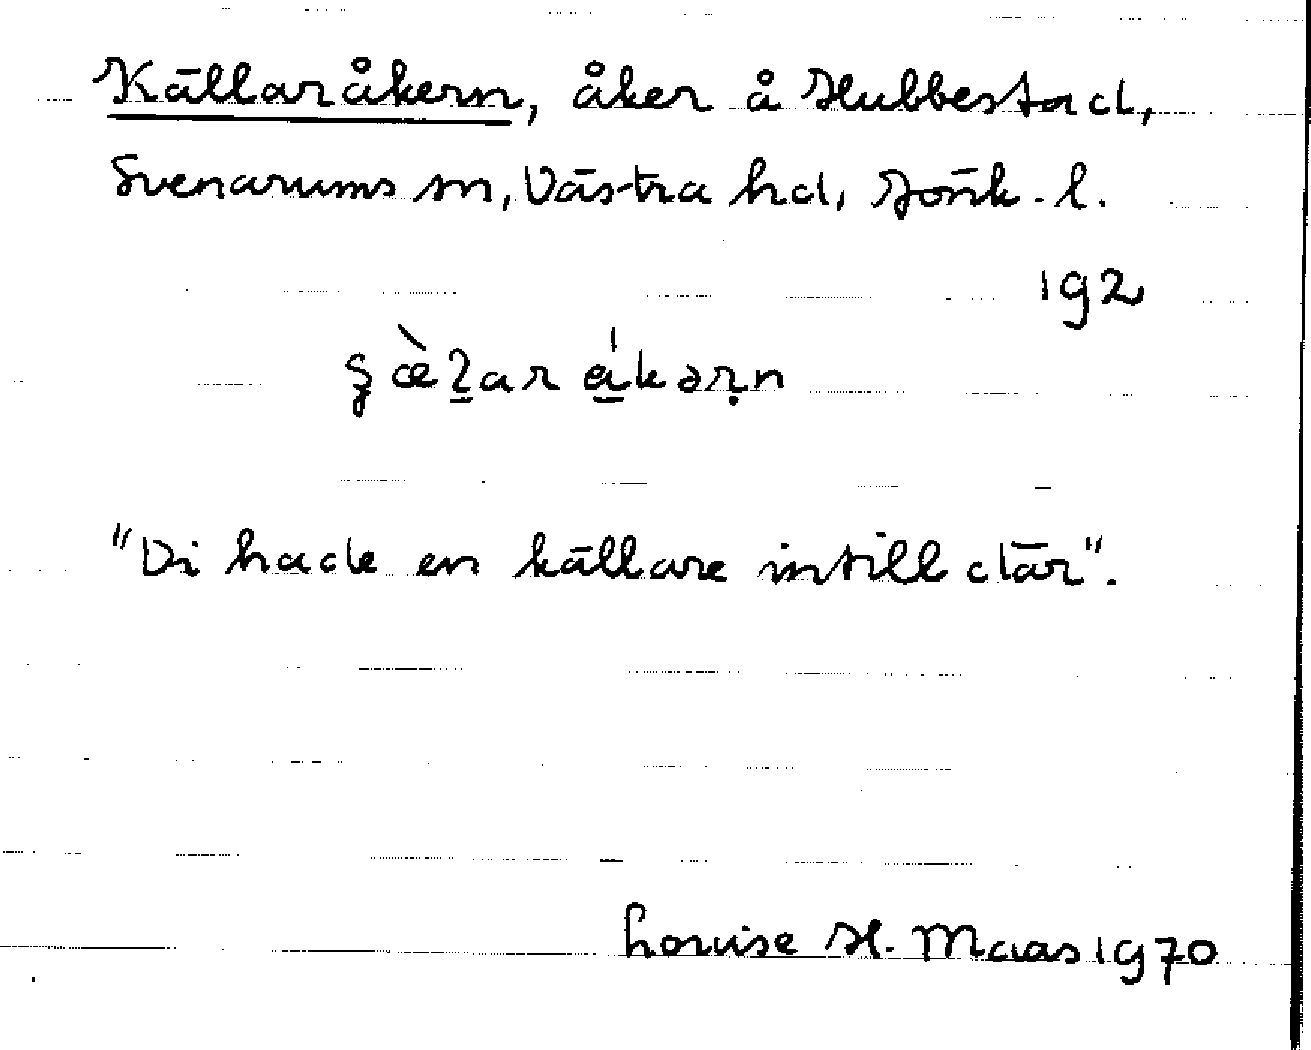 Källaråkern, åker å Hubbestad,
Svenarums sn, Västra hd, Jönk. l.
192
"Di hade en källare intill där".
Louise H. Maas 1970